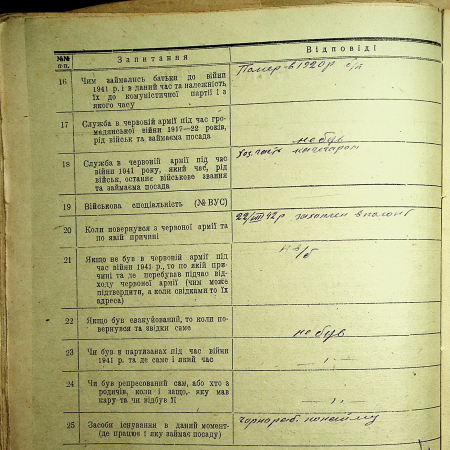 №№ п.п.
Запитання
Відповіді
16 Чим займались батьки до війни
1941 р. і в даний час та належність
їх до комуністичної партії і з
якого часу
Помер в 1920 р б/п
17 Служба в червоній армії під час гро-
мадянської війни 1917—22 років,
рід військ та займаєма посада
не був
18 Служба в червоній армії під час
війни 1941 року, який чес, рід
військ, останнє військове звання
та займаєма посада
19 Військова спеціальність (№ ВУС)
20 Коли повернувся з червоної армії та
по якій причині
22/VIII 42 р
21 Якщо не був в червоній армії під
час війни 1941 р., то по якій при-
чині та де перебував підчас від-
ходу червоної армії (чим може
підтвердити, а коли свідками то їх
адреса)
22 Якщо був евакуйований, то коли по-
вернувся та звідки саме
не був
23 Чи був в партизанах під час війни
1941 р. та де саме і який час
24 Чи був репресований сам, або хто з
родичів, коли і защо, яку мав
кару та чи відбув її
25 Засоби існування в даний момент-
(де працює і яку займає посаду)